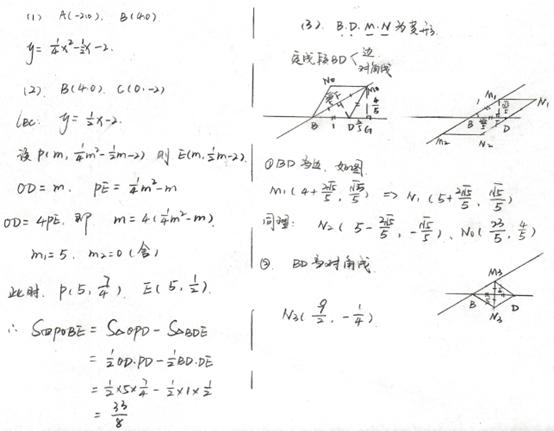 (1) A(-2,0). B(4,0)
y = 1/4x² - 1/2x - 2.
(2). B(4,0). C(0,-2)
lBC: y = 1/2x - 2.
设 P(m, 1/4m² - 1/2m - 2) 则 E(m, 1/2m - 2).
OD = m. PE = 1/4m² - m
OD = 4PE. 即 m = 4(1/4m² - m).
m₁ = 5. m₂ = 0 (舍)
此时. P(5, 7/4). E(5, 1/2).
∴ S四POBE = S△OPD - S△BDE
= 1/2 OD·PD - 1/2 BD·DE
= 1/2 × 5 × 7/4 - 1/2 × 1 × 1/2
= 33/8
(3). B.D.M.N 为菱形.
定线段BD < 边. 对角线
N₀ M₀ 4/5 B 1 D 3/5 G
M₁ N₁ 1 B D M₂ N₂
① BD 为边. 如图.
M₁(4 + 2√5/5, √5/5) ⇒ N₁(5 + 2√5/5, √5/5)
同理: N₂(5 - 2√5/5, -√5/5). N₀(23/5, 4/5)
② BD 为对角线.
M₃ B D N₃
N₃(9/2, -1/4).